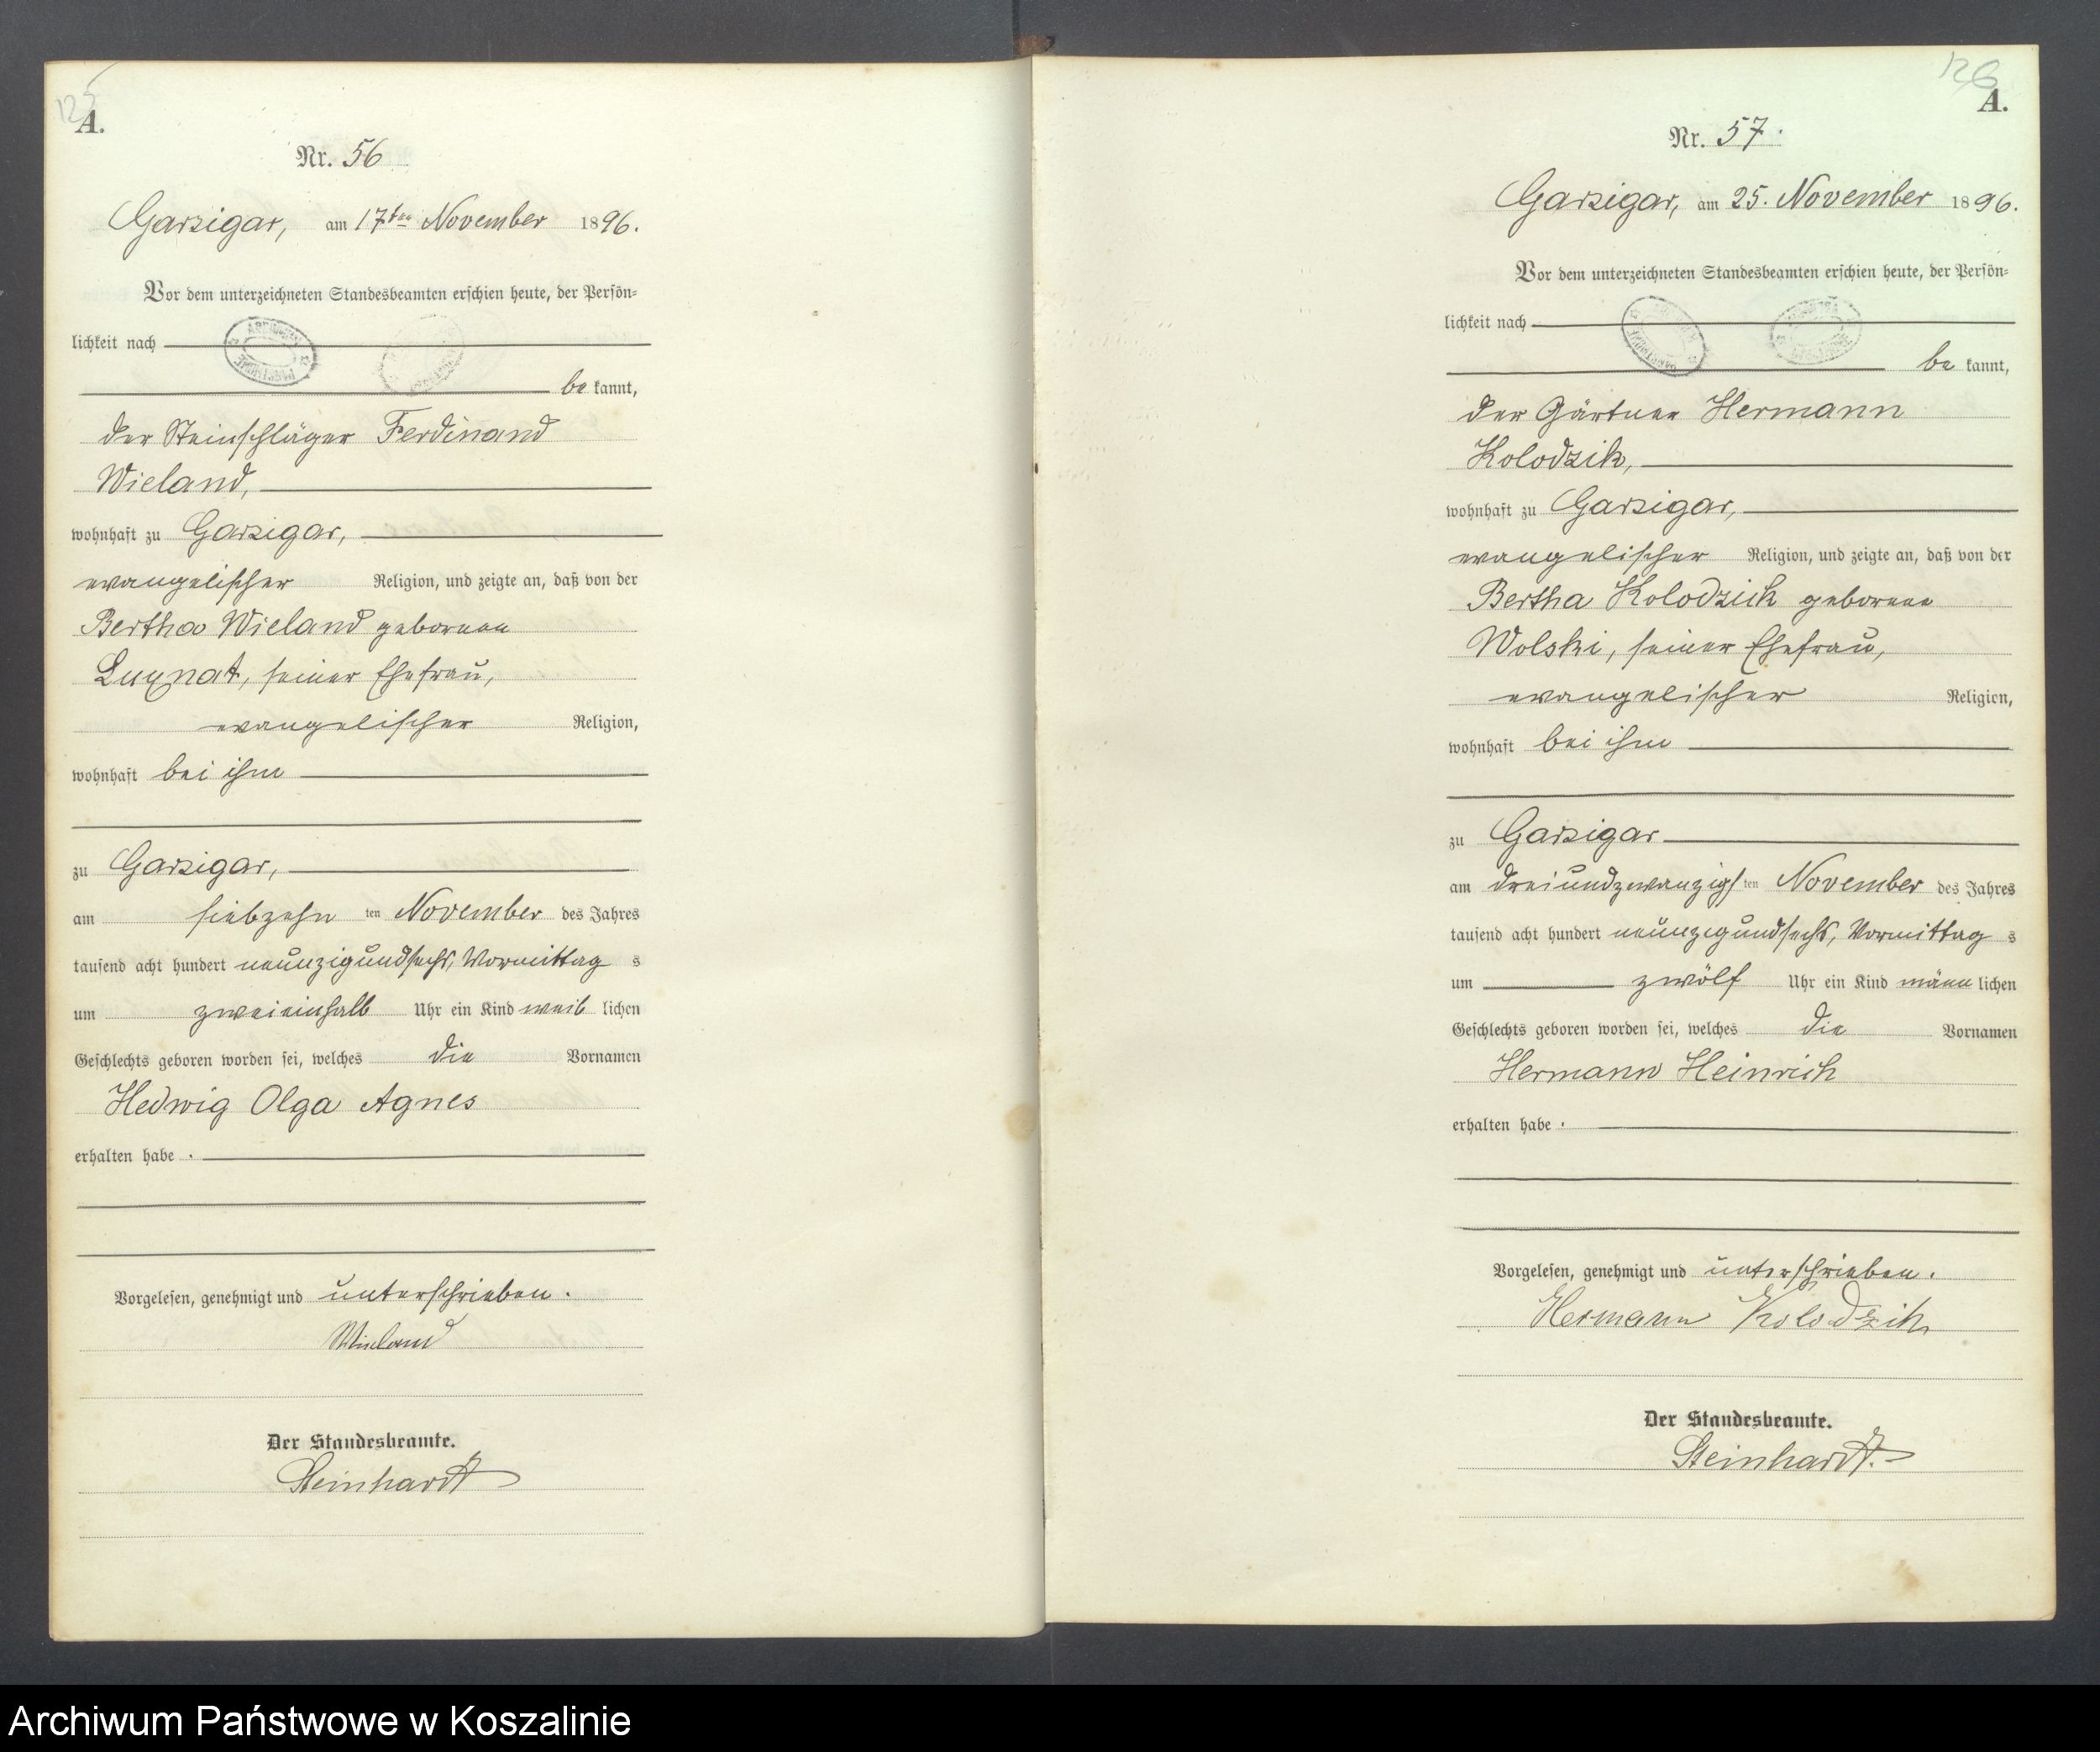 125
A.
Nr. 56
Garzigar, am 17ten November 1896.
Vor dem unterzeichneten Standesbeamten erschien heute, der Persön-
lichkeit nach
be kannt,
der Steinschläger Ferdinand
Wieland,
wohnhaft zu Garzigar,
evangelischer Religion, und zeigte an, daß von der
Bertha Wieland geborenen
seiner Ehefrau,
evangelischer Religion,
wohnhaft bei ihm
zu Garzigar,
am siebzehn ten November des Jahres
tausend acht hundert neunzigundsechs, Vormittag s
um zweieinhalb Uhr ein Kind weib lichen
Geschlechts geboren worden sei, welches die Vornamen
Hedwig Olga Agnes
erhalten habe .
Vorgelesen, genehmigt und unterschrieben.
Wieland
Der Standesbeamte.
Steinhardt
126
A.
Nr. 57.
Garzigar, am 25. November 1896.
Vor dem unterzeichneten Standesbeamten erschien heute, der Persön-
lichkeit nach
be kannt,
der Gärtner Hermann
Kolodzik,
wohnhaft zu Garzigar,
evangelischer Religion, und zeigte an, daß von der
Bertha Kolodzik geborene
Wolski, seiner Ehefrau,
evangelischer Religion,
wohnhaft bei ihm
zu Garzigar
am dreiundzwanzigs ten November des Jahres
tausend acht hundert neunzigundsechs, Vormittag s
um zwölf Uhr ein Kind männ lichen
Geschlechts geboren worden sei, welches die Vornamen
Hermann Heinrich
erhalten habe .
Vorgelesen, genehmigt und unterschrieben.
Hermann Kolodzik
Der Standesbeamte.
Steinhardt.
Archiwum Państwowe w Koszalinie